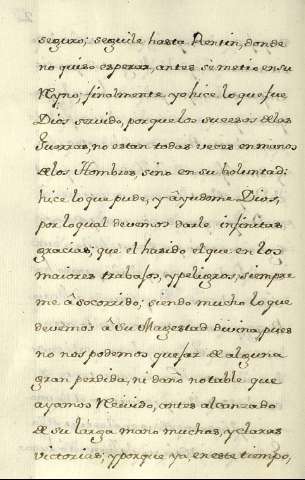 seguro; seguile hasta Rentin, donde
no quiso esperar, antes se metio en su
Reyno; finalmente yo hice lo que fue
Dios seruido, porque los sucesos de las
Guerras, no estan todas veces en manos
de los Hombres, sino en su boluntad:
hice lo que pude, y âyudome Dios,
por lo qual devemos darle infinitas
gracias; que el hasido el que en los
maiores trabajos, y peligros, siempre
me â socorrido; siendo mucho lo que
devemos â Su Magestad divina, pues
no nos podemos quejar de alguna
gran perdida, ni daño notable que
ayamos Reciuido, antes alcanzado
de su larga mano muchas, y claras
victorias; y porque ya, en este tiempo,